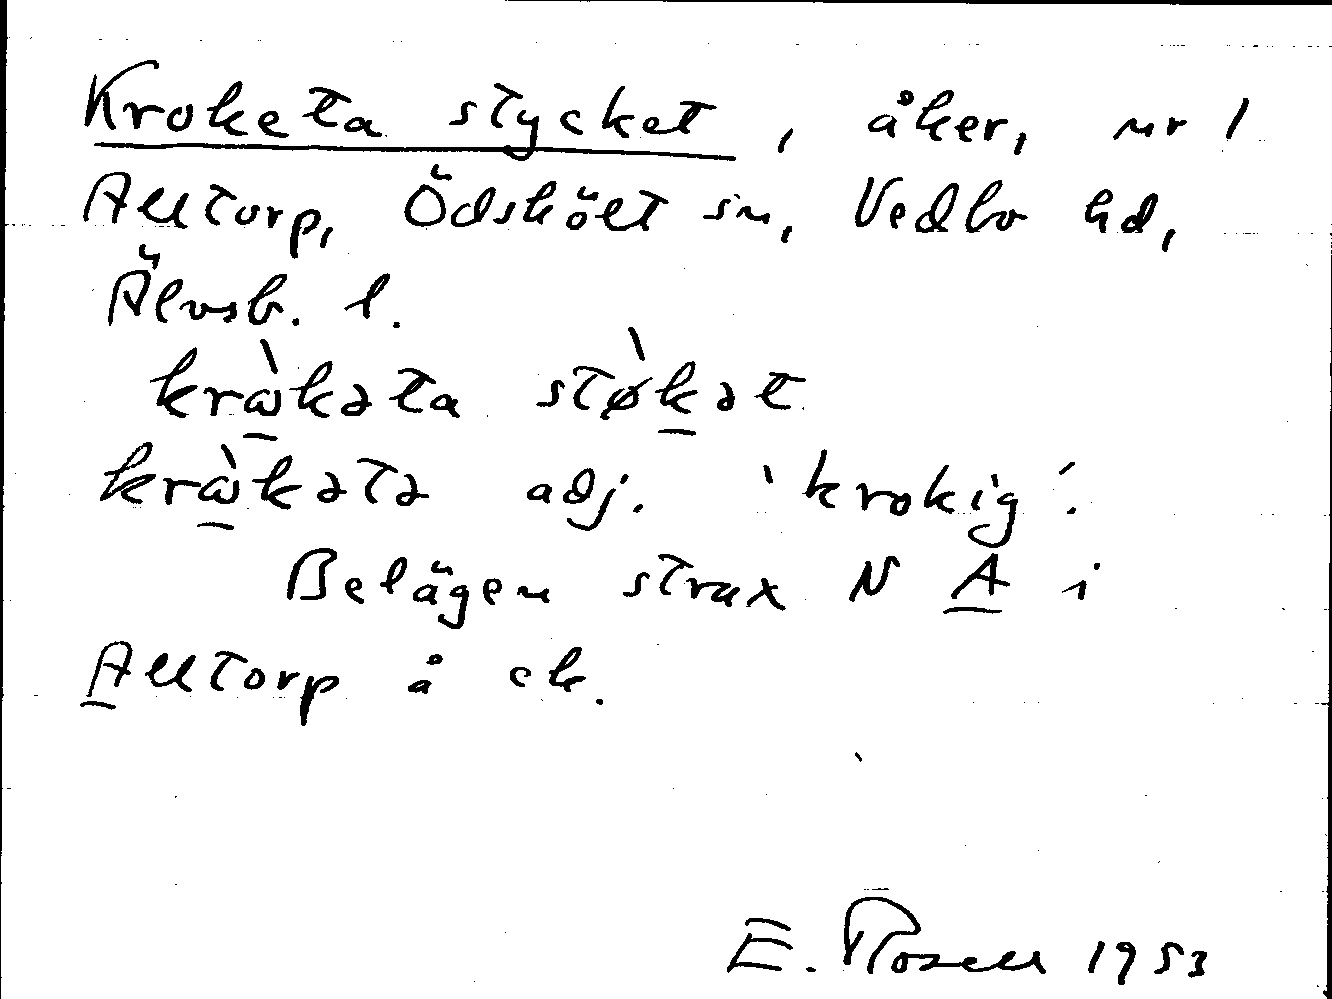 Kroketa stycket, åker, nr 1
Alltorp, Ödskölt sn, Vedbo hd,
Älvsb. l.
krὼkəta stø̀kət
krὼkətə adj. 'krokig'.
Belägen strax N A i
Alltorp å ek.
E. Rosell 1953